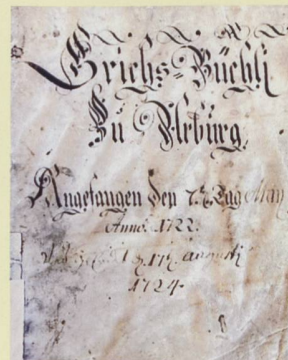 Grichs-Büchli
Zu Arburg,
Angefangen den 7.t. Tag May
Anno. 1722.
17. Augusti
1724.